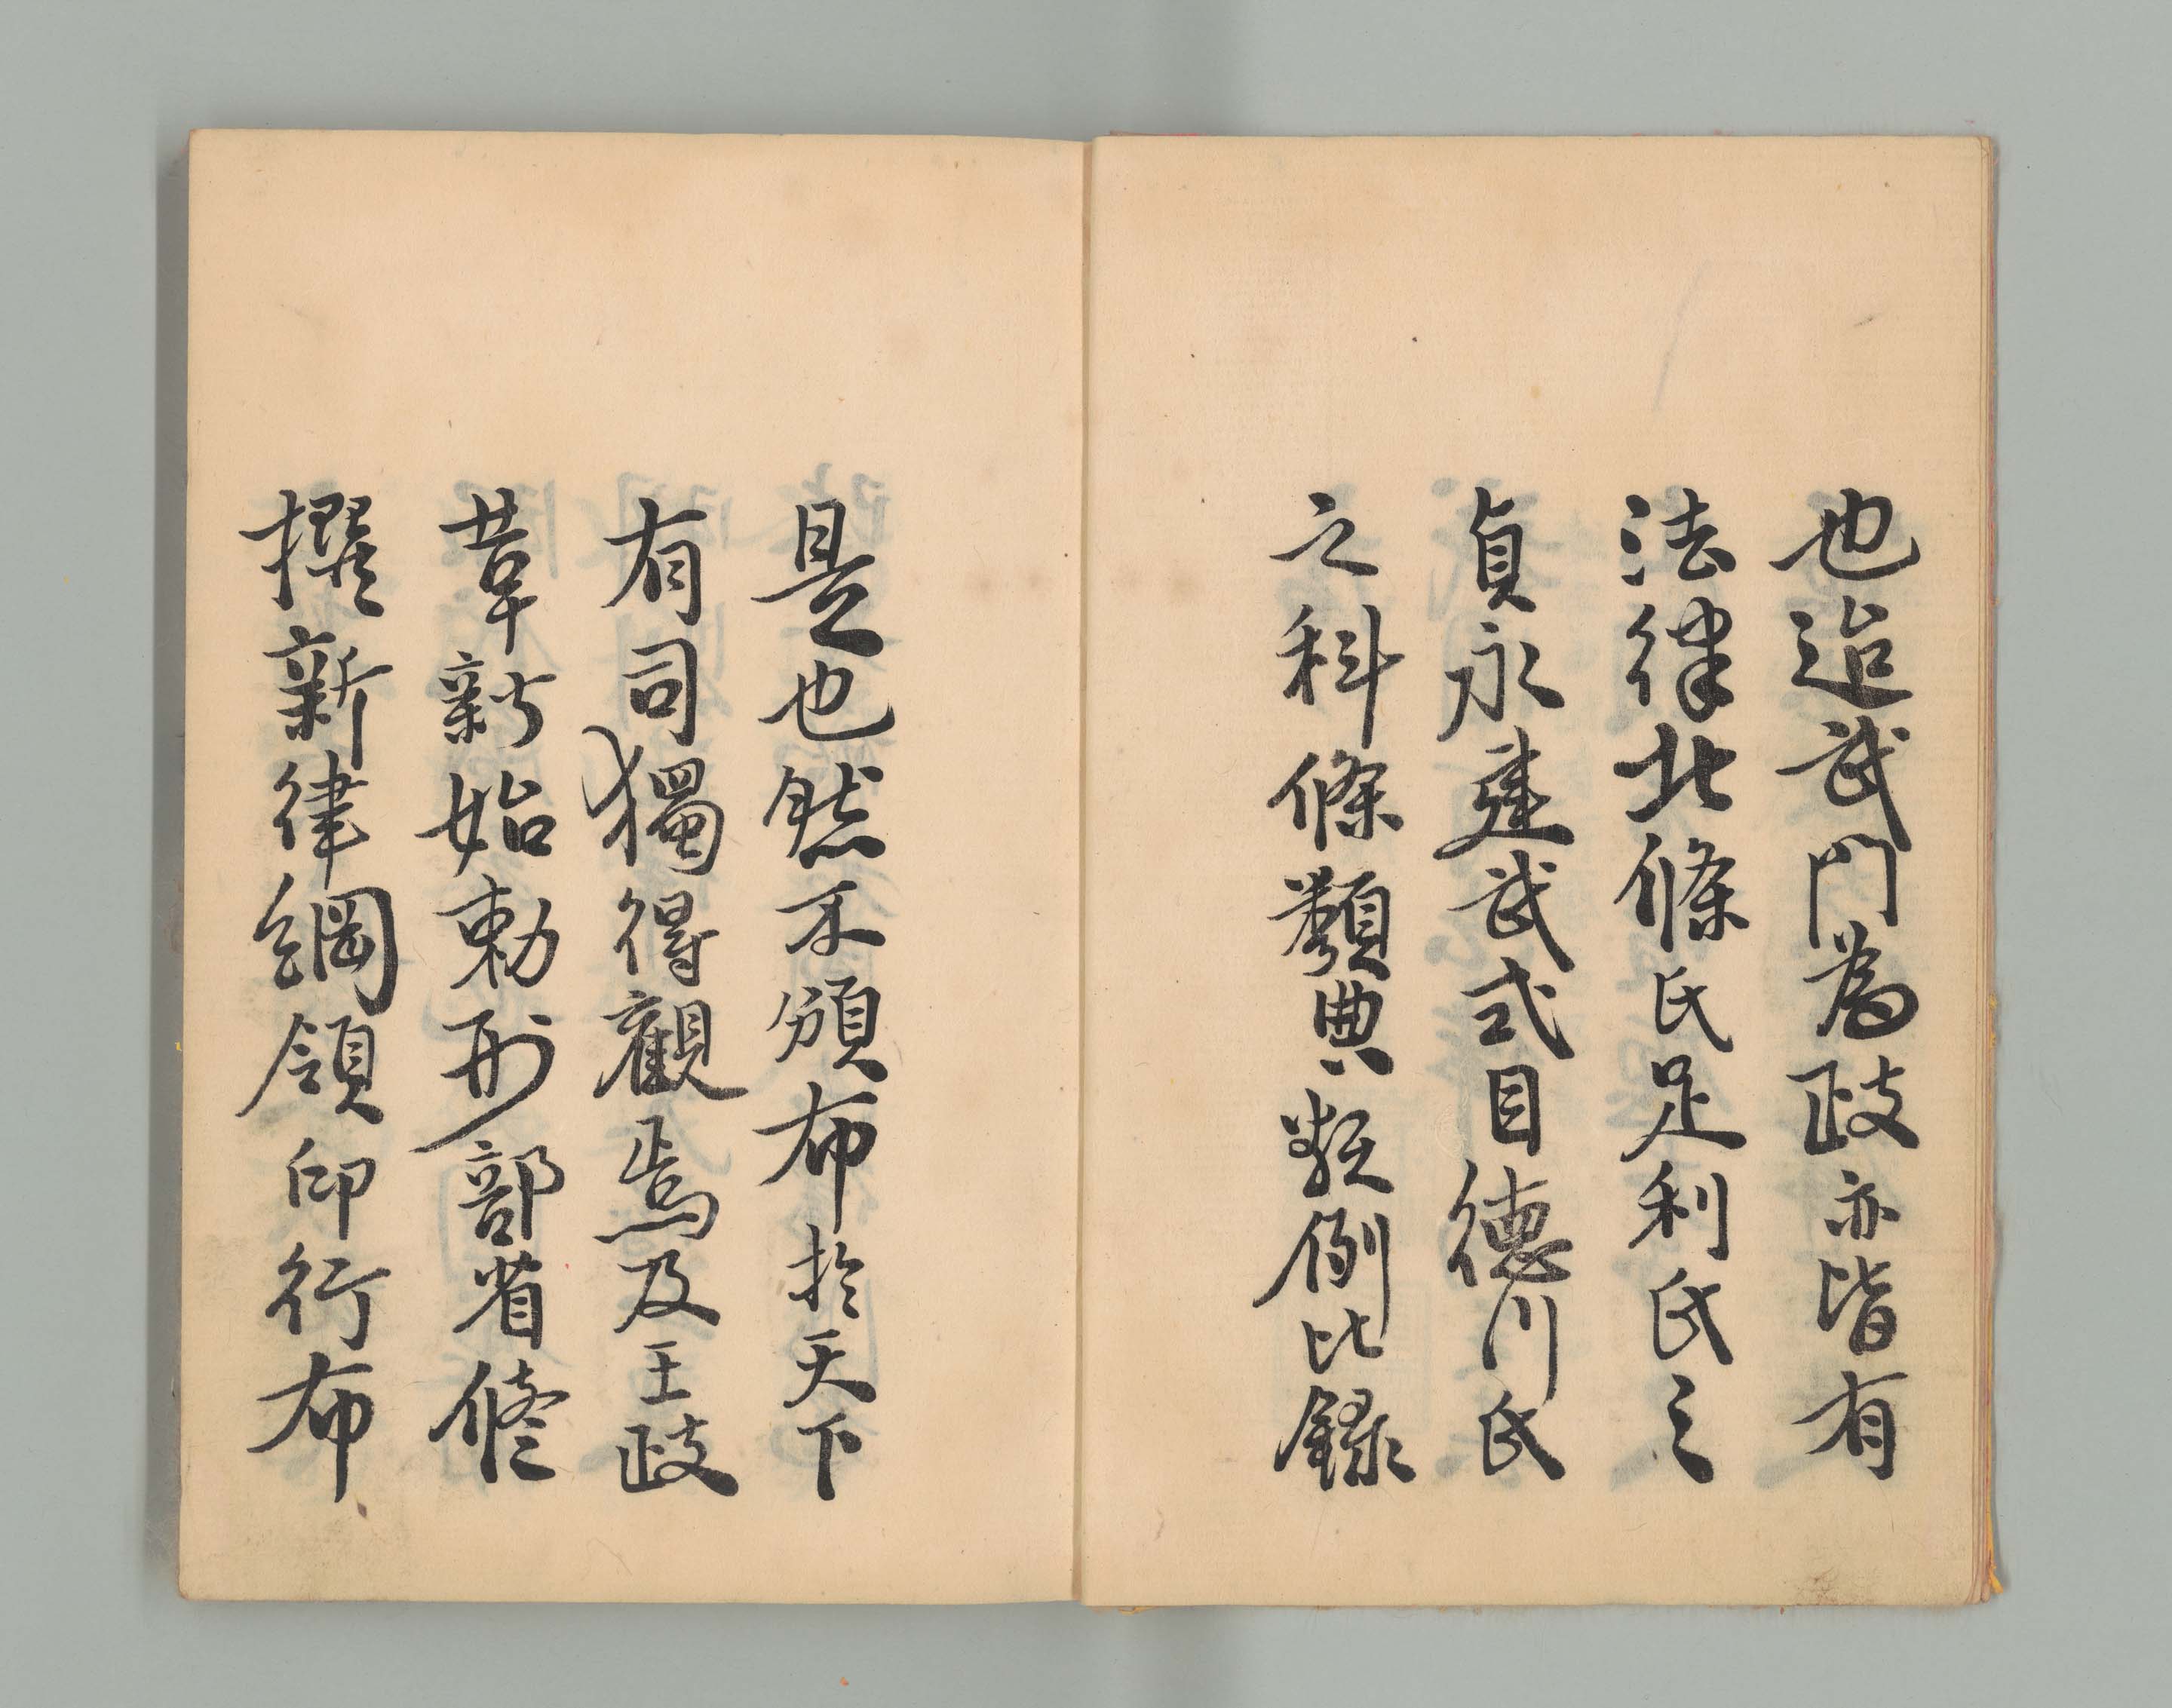 也迨武門為政亦皆有
法律北條氏足利氏之
貞永建武式目德川氏
之科條類典類例比錄
是也然不頒布於天下
有司獨得觀焉及王政
革新始勅刑部省修
撰新律綱領印行布